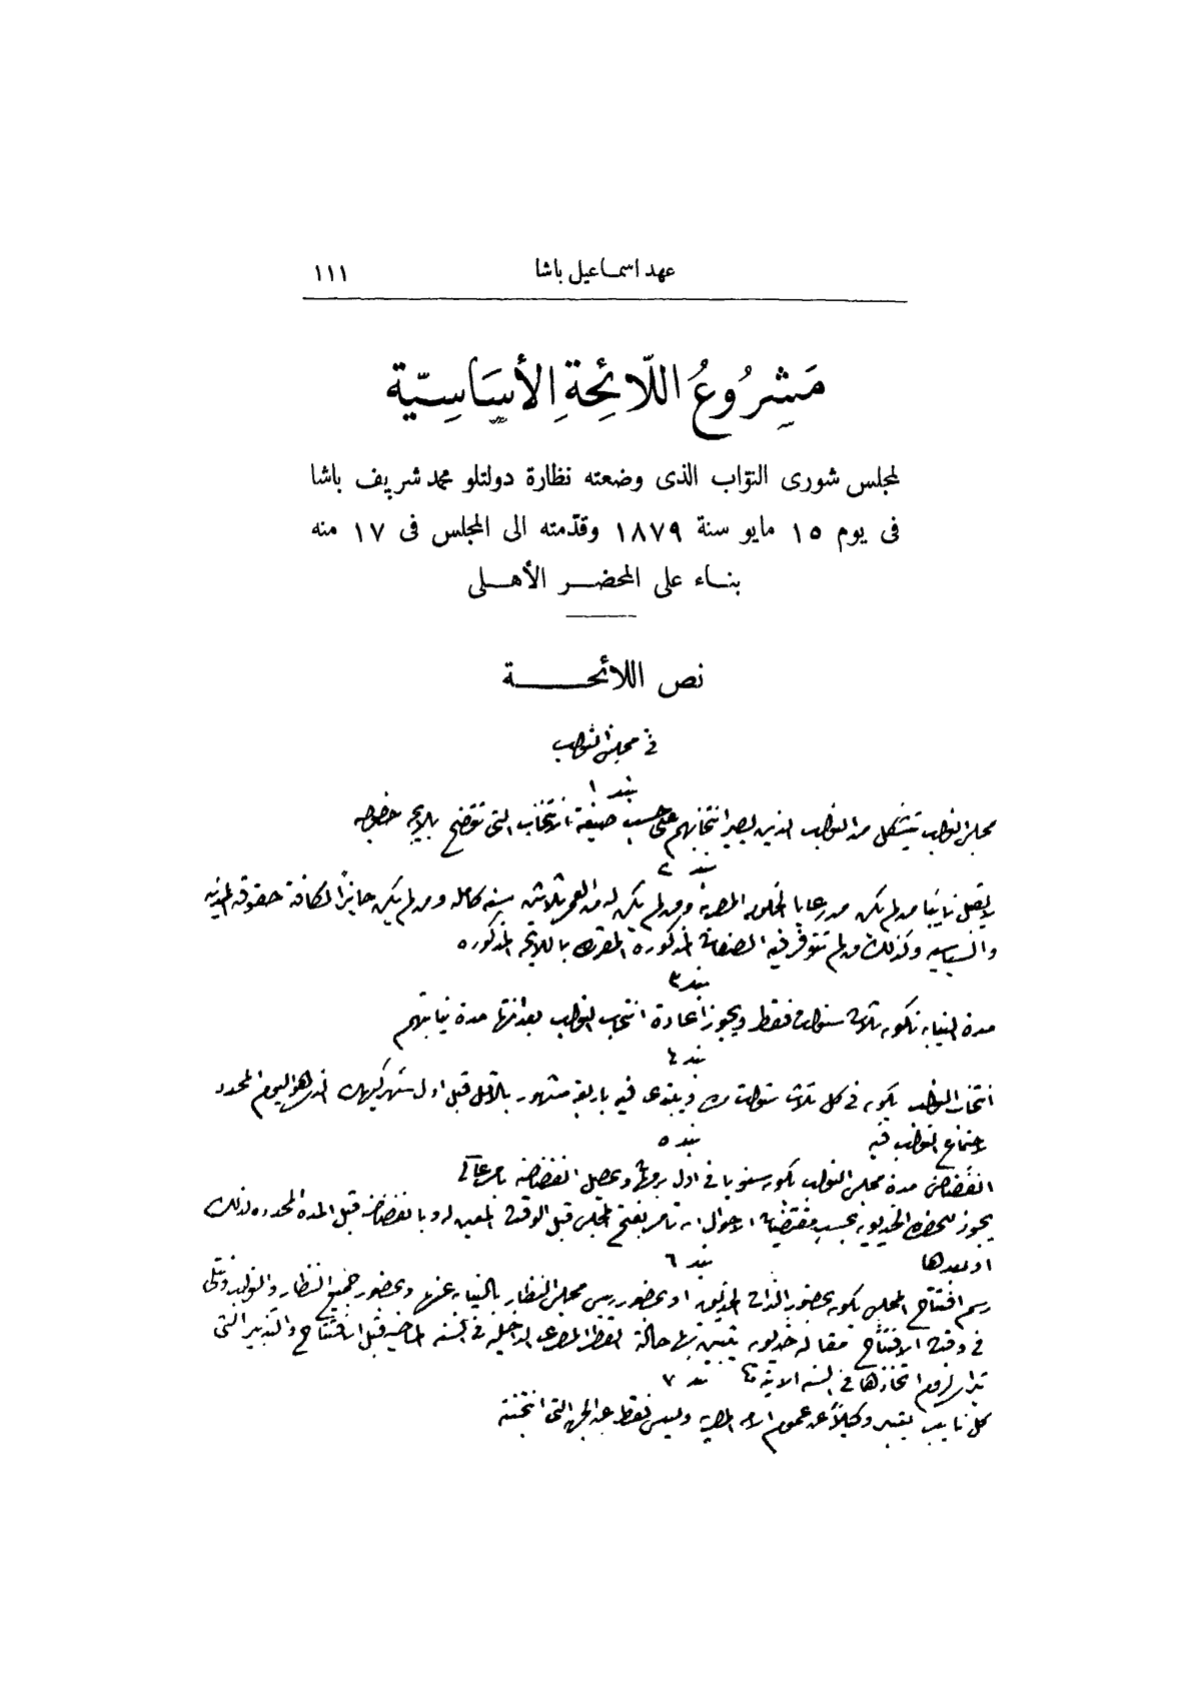 عهد اسماعيل باشا ١١١
مَشِرُوعُ اللّائِحةِ الأسَاسِيّة
لمجلس شورى النوّاب الذى وضعته نظارة دولتلو محمد شريف باشا
فى يوم ١٥ مايو سنة ١٨٧٩ وقدّمته الى المجلس فى ١٧ منه
بناء على المحضر الأهلى
نص اللائحة
فى مجلس النواب
بند ١
مجلس النواب يتشكل من النواب الذين يصير انتخابهم على حسب صيغة الانتخاب التى توضح بلايحه خصوصيه
بند ٢
لا يقبل نايبا من لم يكن من رعايا الحكومه المصريه ومن لم يكن له من العمر ثلاثين سنه كامله ومن لم يكن حايزاً لكافة حقوقه المدنيه
والسياسيه وكذلك من لم تتوفر فيه الصفات المذكورة المقرره باللايحه المذكوره
بند ٣
مدة النيابه تكون ثلاث سنوات فقط ويجوز اعادة انتخاب النواب بعد انتها مدة نيابتهم
بند ٤
انتخاب النواب يكون فى كل ثلاث سنوات مره ويبتدى فيه باربعة شهور بالاقل قبل اول شهر كيهك الذى هو اليوم المحدد
لاجتماع النواب فيه
بند ٥
انفضاض مدة مجلس النواب تكون سنويا فى اول برمهات ويحصل انفضاضه بامر عالى
يجوز للحضره الخديويه بحسب مقتضيات الاحوال ان تامر بفتح المجلس قبل الوقت المعين له وبانفضاضه قبل المده المحدده لذلك
او بعدها
بند ٦
رسم افتتاح المجلس يكون بحضور الذات الخديويه او بحضور رييس مجلس النظار بالنيابه عنها وبحضور جميع النظار والنواب وتتلى
فى وقت الافتتاح مقاله خديويه يتبين بها حالة القطر المصرى الداخليه فى السنه الماضيه قبل الافتتاح والتدابير التى
لزوم اتخاذها فى السنه الاتيه
بند ٧
كل نايب يعتبر وكيلاً عن عموم الامه المصريه وليس فقط عن الجهه التى انتخبته